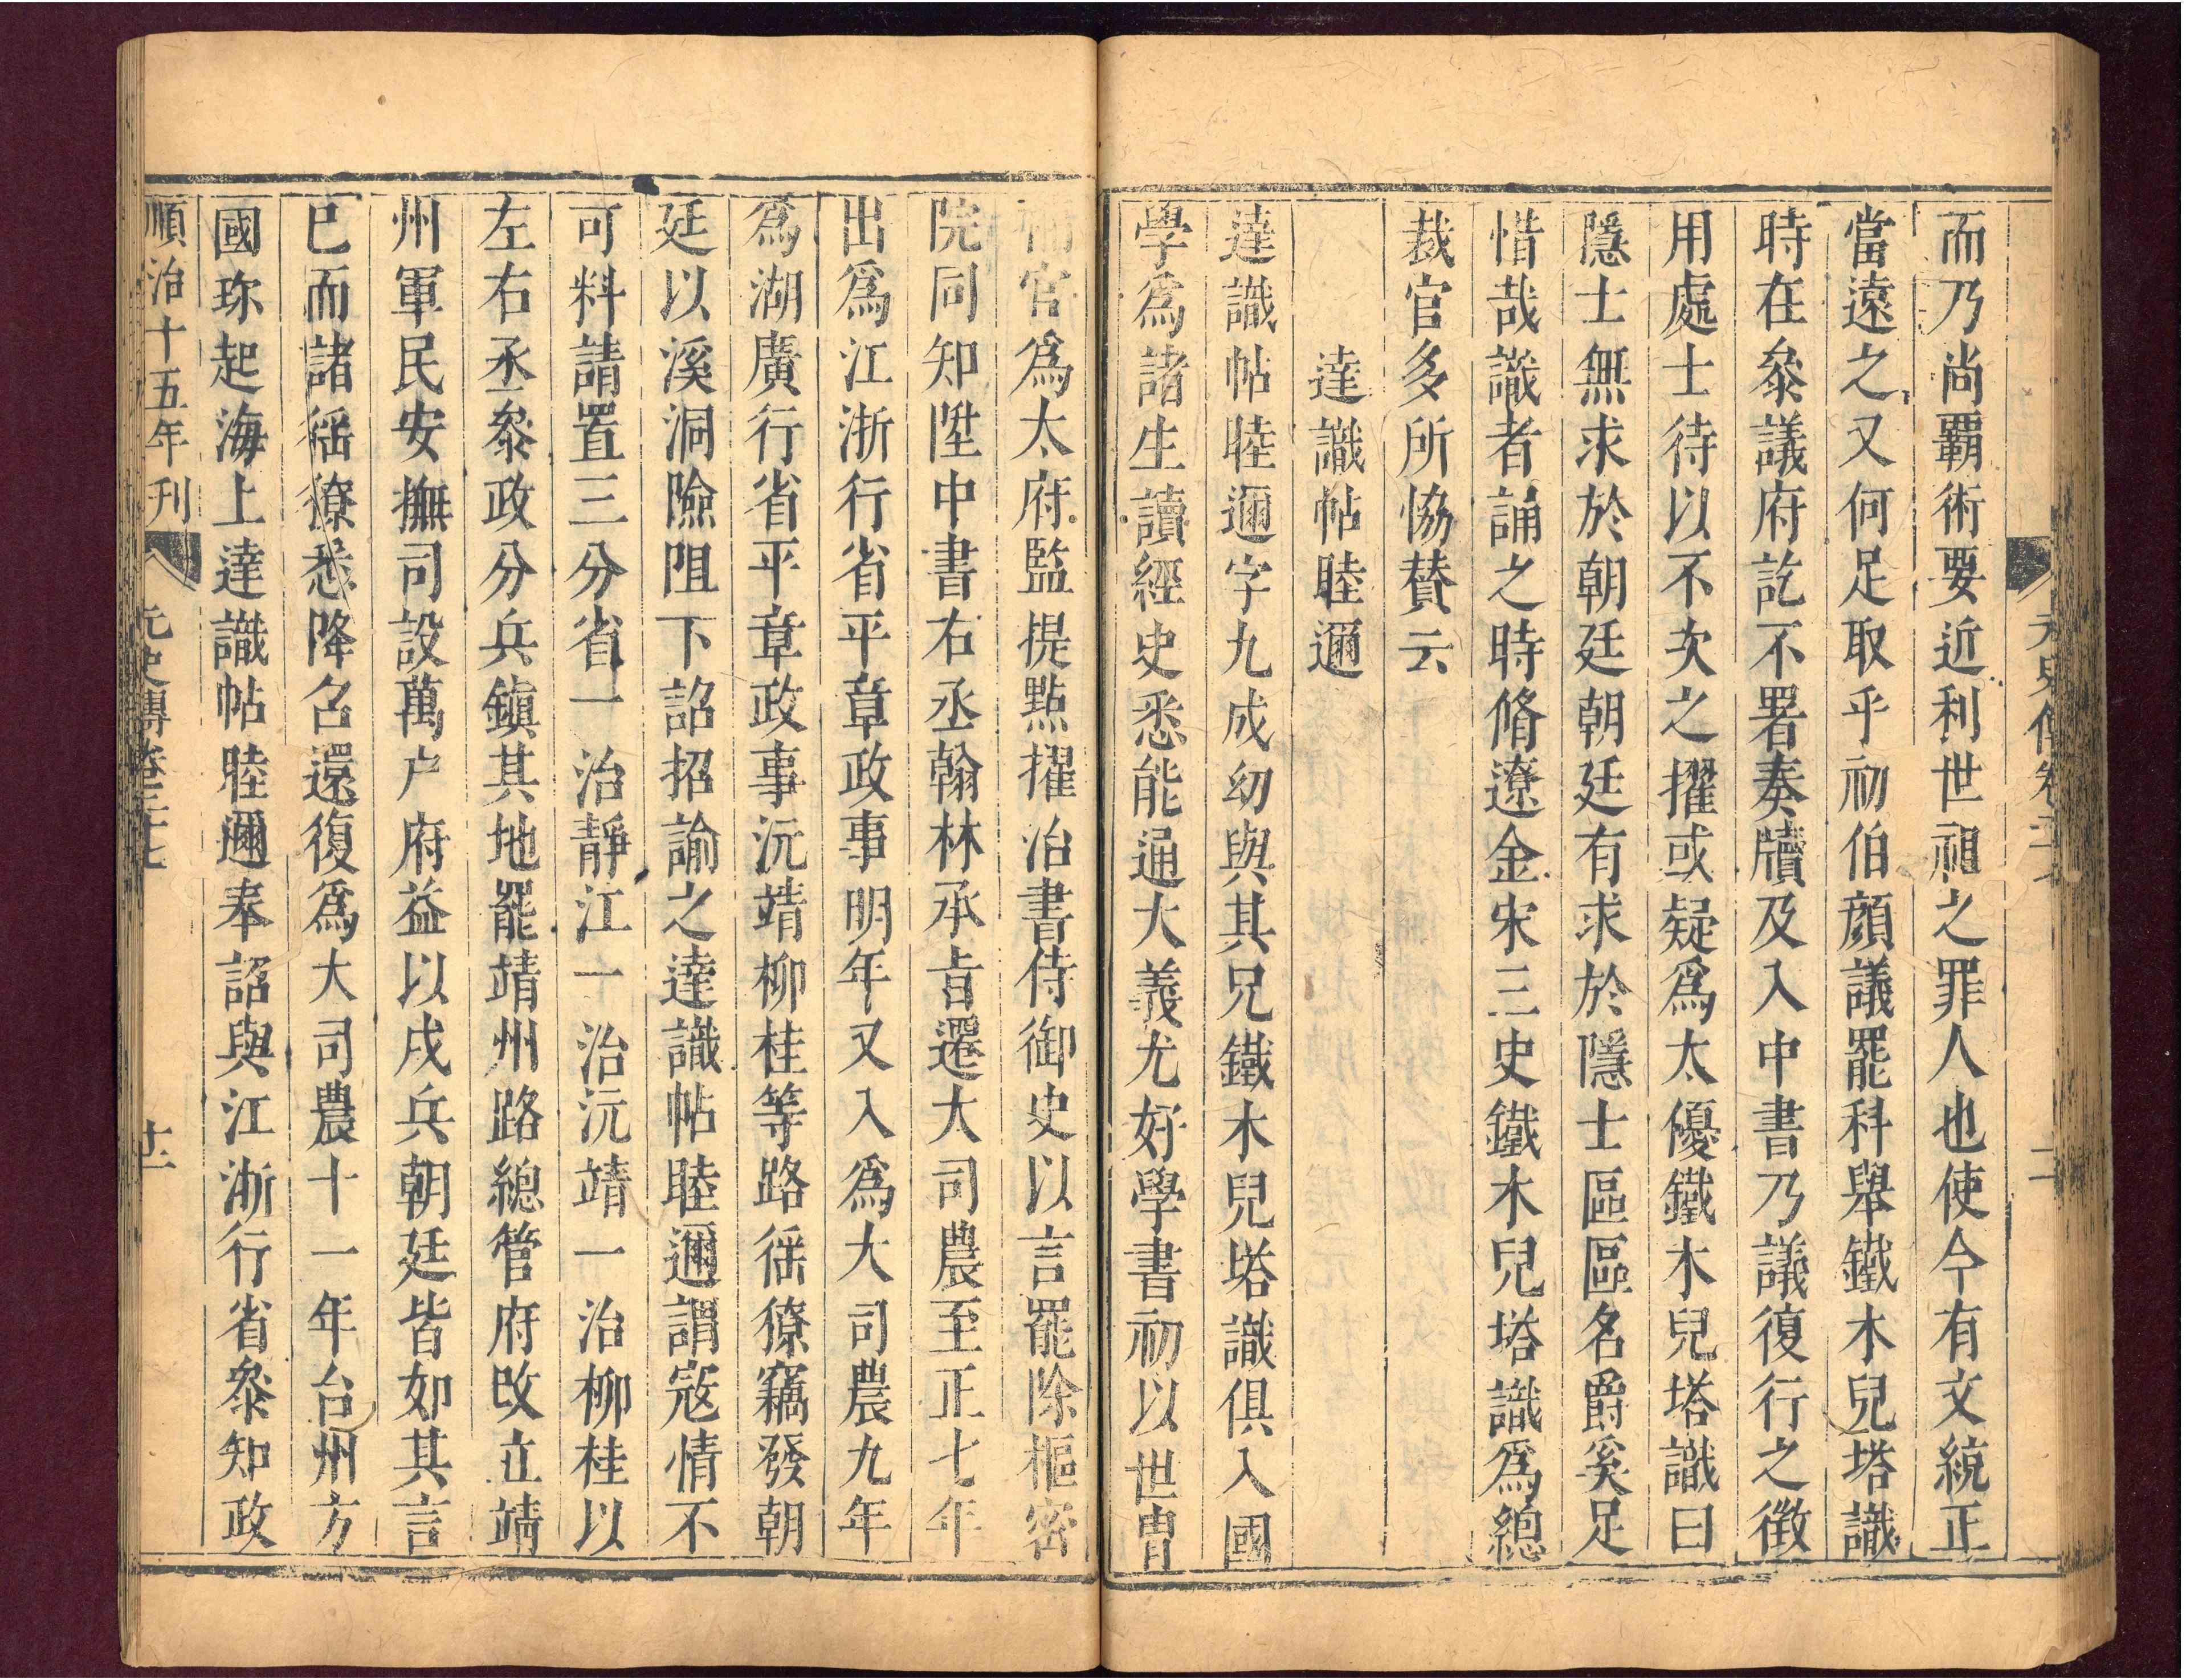 元史傳卷二十七 二
而乃尚霸術要近利世祖之罪人也使今有文統正
當遠之又何足取乎初伯顏議罷科舉鐵木兒塔識
時在叅議府訖不署奏牘及入中書乃議復行之徵
用處士待以不次之擢或疑爲太優鐵木兒塔識曰
隱士無求於朝廷朝廷有求於隱士區區名爵奚足
惜哉識者誦之時脩遼金宋三史鐵木兒塔識爲總
裁官多所恊賛云
達識帖睦邇
達識帖睦邇字九成幼與其兄鐵木兒塔識俱入國
學爲諸生讀經史悉能通大義尤好學書初以世胄
補官爲太府監提點擢治書侍御史以言罷除樞密
院同知陞中書右丞翰林承旨遷大司農至正七年
出爲江浙行省平章政事明年又入爲大司農九年
爲湖廣行省平章政事沅靖柳桂等路徭獠竊發朝
廷以溪洞險阻下詔招諭之達識帖睦邇謂寇情不
可料請置三分省一治靜江一治沅靖一治柳桂以
左右丞叅政分兵鎮其地罷靖州路總管府改立靖
州軍民安撫司設萬户府益以戍兵朝廷皆如其言
巳而諸徭獠悉降召還復爲大司農十一年台州方
國珎起海上達識帖睦邇奉詔與江浙行省叅知政
順治十五年刊 元史傳卷二十七